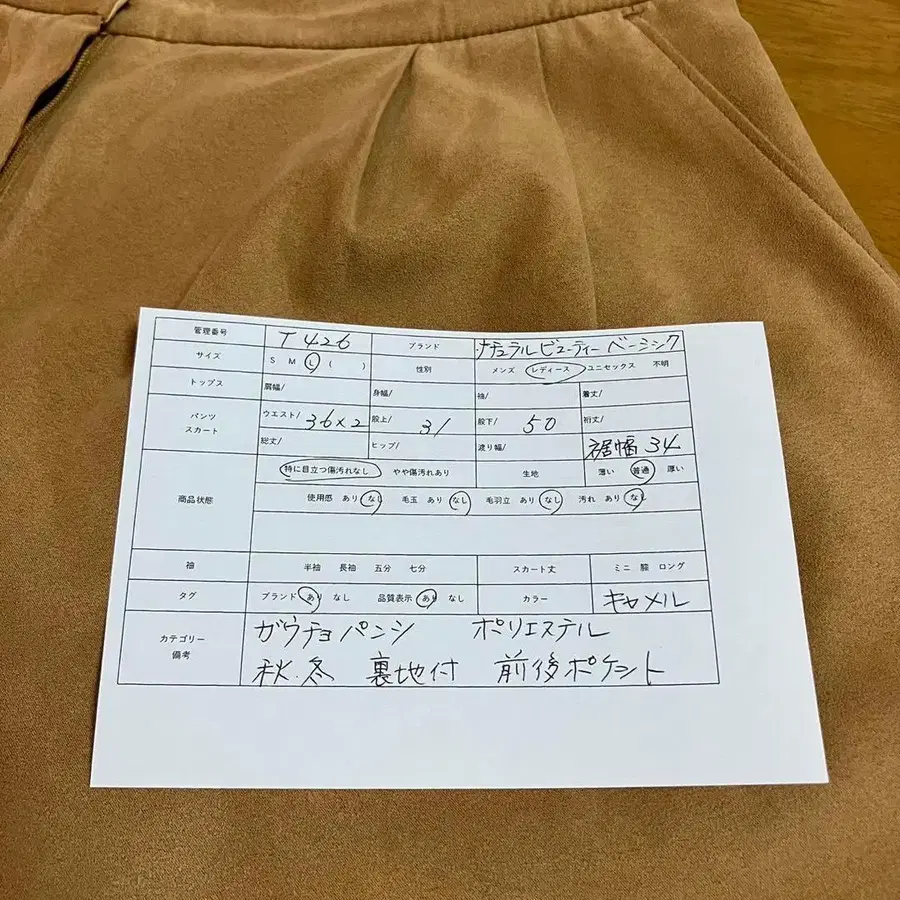 管理番号 T426 ブランド ナチュラルビューティーベーシック
サイズ S M L ( ) 性別 メンズ レディース ユニセックス 不明
トップス 肩幅/ 身幅/ 袖/ 着丈/
パンツ スカート ウエスト/ 36×2 股上/ 31 股下/ 50 裄丈/
総丈/ ヒップ/ 渡り幅/ 裾幅 34
商品状態 特に目立つ傷汚れなし やや傷汚れあり 生地 薄い 普通 厚い
使用感 あり なし 毛玉 あり なし 毛羽立 あり なし 汚れ あり なし
袖 半袖 長袖 五分 七分 スカート丈 ミニ 膝 ロング
タグ ブランド あり なし 品質表示 あり なし カラー キャメル
カテゴリー 備考 ガウチョパンツ ポリエステル
秋.冬 裏地付 前後ポケット